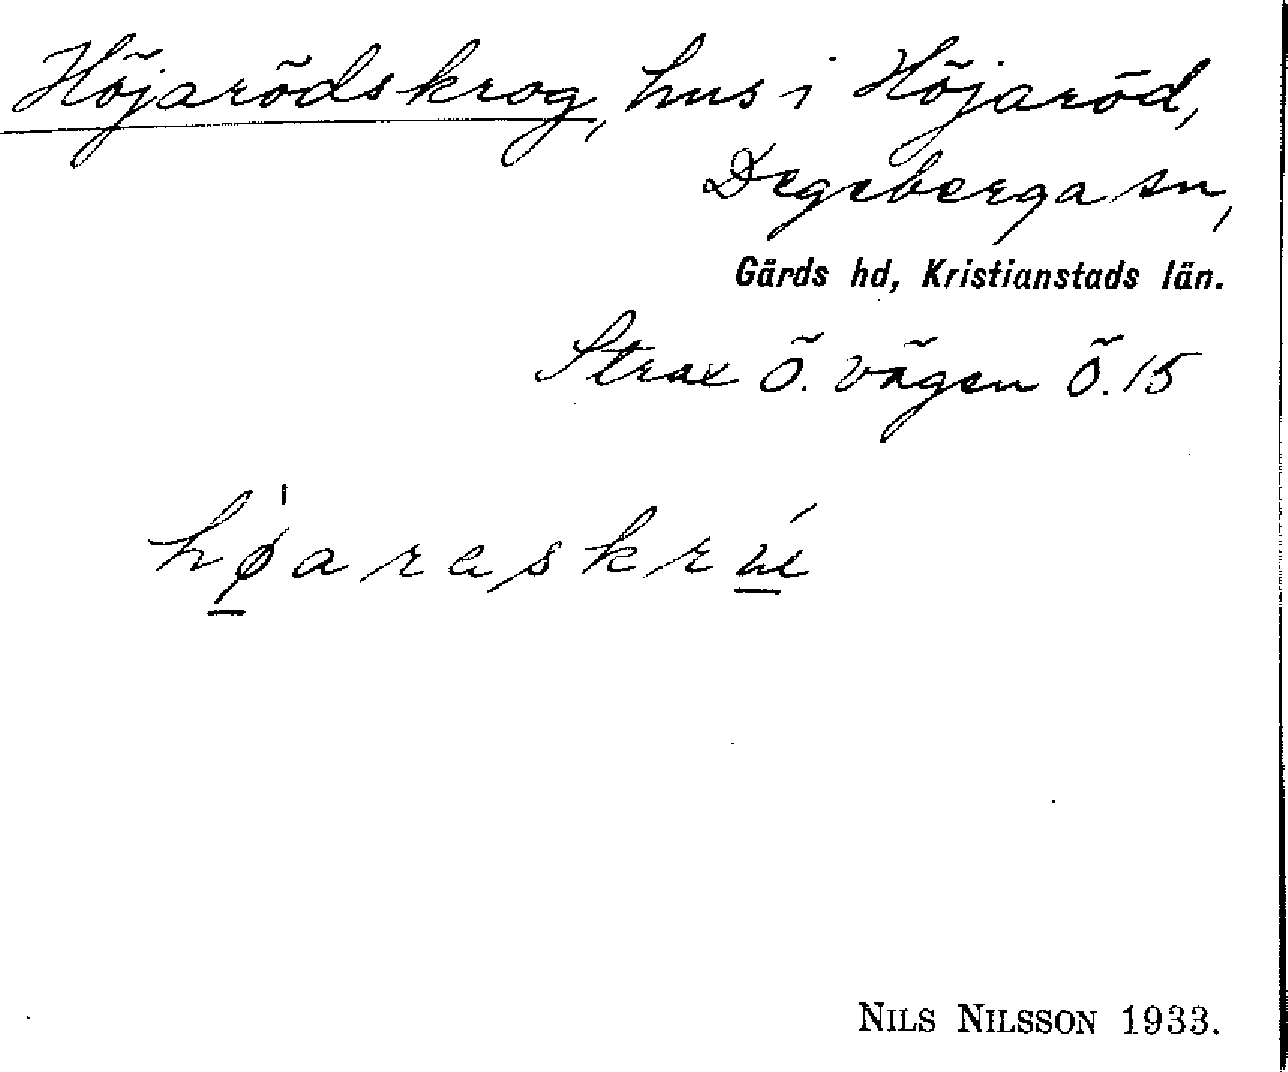 Höjarödskrog, hus i Höjaröd,
Degeberga sn,
Gärds hd, Kristianstads län.
Strax ö. vägen Ö. 15
NILS NILSSON 1933.